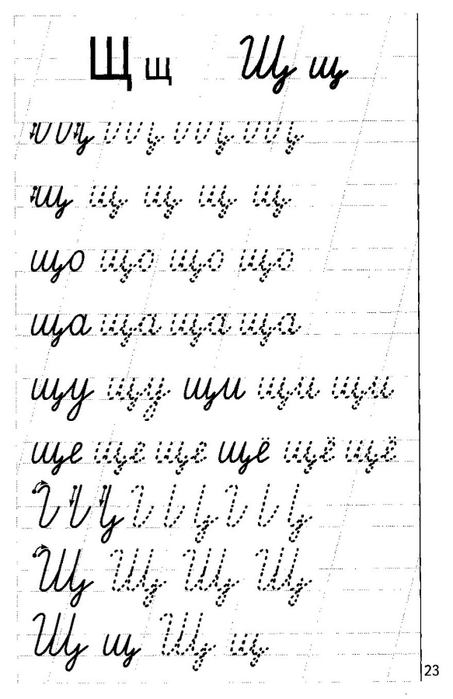 Щ щ Щ щ
щ щ щ щ щ
що що що що
ща ща ща ща
щу щу щи щи щи
ще ще ще щё щё щё
Щ Щ Щ Щ
Щ щ Щ щ
23